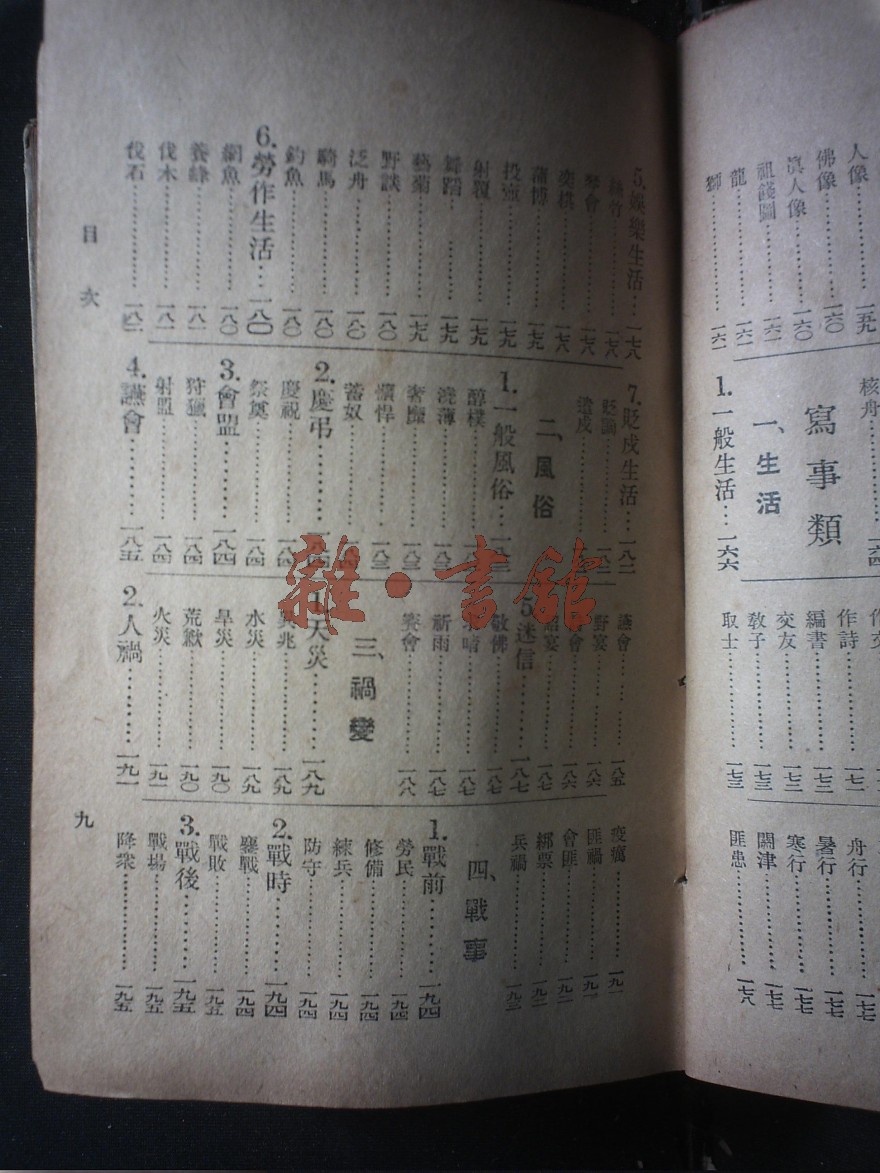 人像……一五九
佛像……一六〇
眞人像……一六〇
祖餞圖……一六一
龍……一六一
獅……一六一
核舟
寫事類
一、生活
1.一般生活…一六六
作詩
編書
交友……一七三
敎子……一七三
取士……一七三
舟行
暑行……一七七
寒行……一七七
關津……一七七
匪患……一七八
5.娛樂生活…一七八
絲竹……一七八
琴會……一七八
奕棋……一七八
蒲博……一七九
投壺……一七九
射覆……一七九
舞蹈……一七九
藝菊……一七九
野談……一八〇
泛舟……一八〇
騎馬……一八〇
釣魚……一八〇
6.勞作生活…一八〇
網魚……一八〇
養蜂……一八一
伐木……一八一
伐石……一八二
7.貶戍生活…一八二
貶謫
遣戍
二、風俗
1.一般風俗
醇樸
澆薄……一八三
奢靡……一八三
獷悍……一八三
蓄奴
2.慶弔
慶祝
祭奠……一八四
3.會盟……一八四
狩獵……一八四
射盟……一八四
4.讌會……一八五
燕會……一八五
野宴……一八六
5.迷信……一八七
敬佛……一八七
祈雨……一八七
賽會……一八八
三、禍變
1.天災……一八九
異兆……一八九
水災……一八九
旱災……一九〇
荒歉……一九〇
火災……一九一
2.人禍……一九一
疫癘……一九一
匪禍……一九一
會匪……一九二
綁票……一九二
兵禍……一九三
四、戰事
1.戰前……一九四
勞民……一九四
修備……一九四
練兵……一九四
防守……一九四
2.戰時……一九四
鏖戰……一九四
戰敗……一九五
3.戰後……一九五
戰場……一九五
降衆……一九五
目次
九
雜·書館